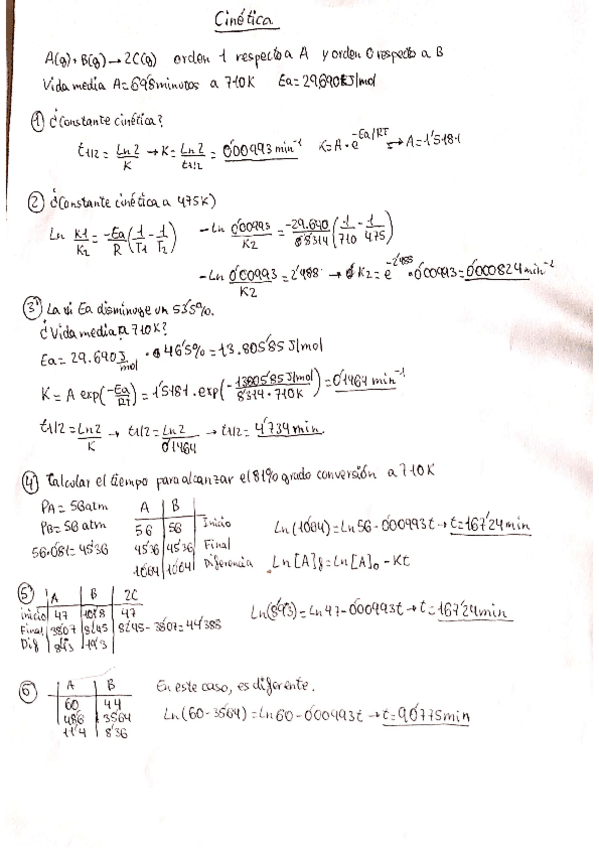 Cinética
A(g)+B(g)→2C(g) orden 1 respecto a A y orden 0 respecto a B
Vida media A=69'8 minutos a 710K Ea=29.690 J/mol
① ¿Constante cinética?
t1/2=Ln2/K → K=Ln2/t1/2=0'00993 min⁻¹ K=A·e^-Ea/RT → A=1'5181
② ¿Constante cinética a 475K)
Ln K1/K2=-Ea/R(1/T1-1/T2) -Ln 0'00993/K2=-29.690/8'314(1/710-1/475)
-Ln 0'00993/K2=2'488 → K2=e^-2'488·0'00993=0'000824 min⁻¹
③ La si Ea disminuye un 53'5%.
¿Vida media a 710K?
Ea=29.690 J/mol · 0'465%=13.805'85 J/mol
K=A exp(-Ea/RT)=1'5181·exp(-13805'85 J/mol/8'314·710K)=0'1464 min⁻¹
t1/2=Ln2/K → t1/2=Ln2/0'1464 → t1/2=4'734 min.
④ Calcular el tiempo para alcanzar el 81% grado conversión a 710K
PA=56atm A B
PB=56 atm 56 56 Inicio Ln(10'64)=Ln56-0'00993t → t=167'24min
56·0'81=45'36 45'36 45'36 Final
10'64 10'64 Diferencia Ln[A]f=Ln[A]o-Kt
⑤ A B 2C
inicio 47 47
Final 38'07 82'45 82'45-38'07=44'385 Ln(8'93)=Ln47-0'00993t → t=167'24min
Dif 8'93 19'3
⑥ A B En este caso, es diferente.
60 44
48'6 35'64 Ln(60-35'64)=Ln60-0'00993t → t=90'775min
11'4 8'36